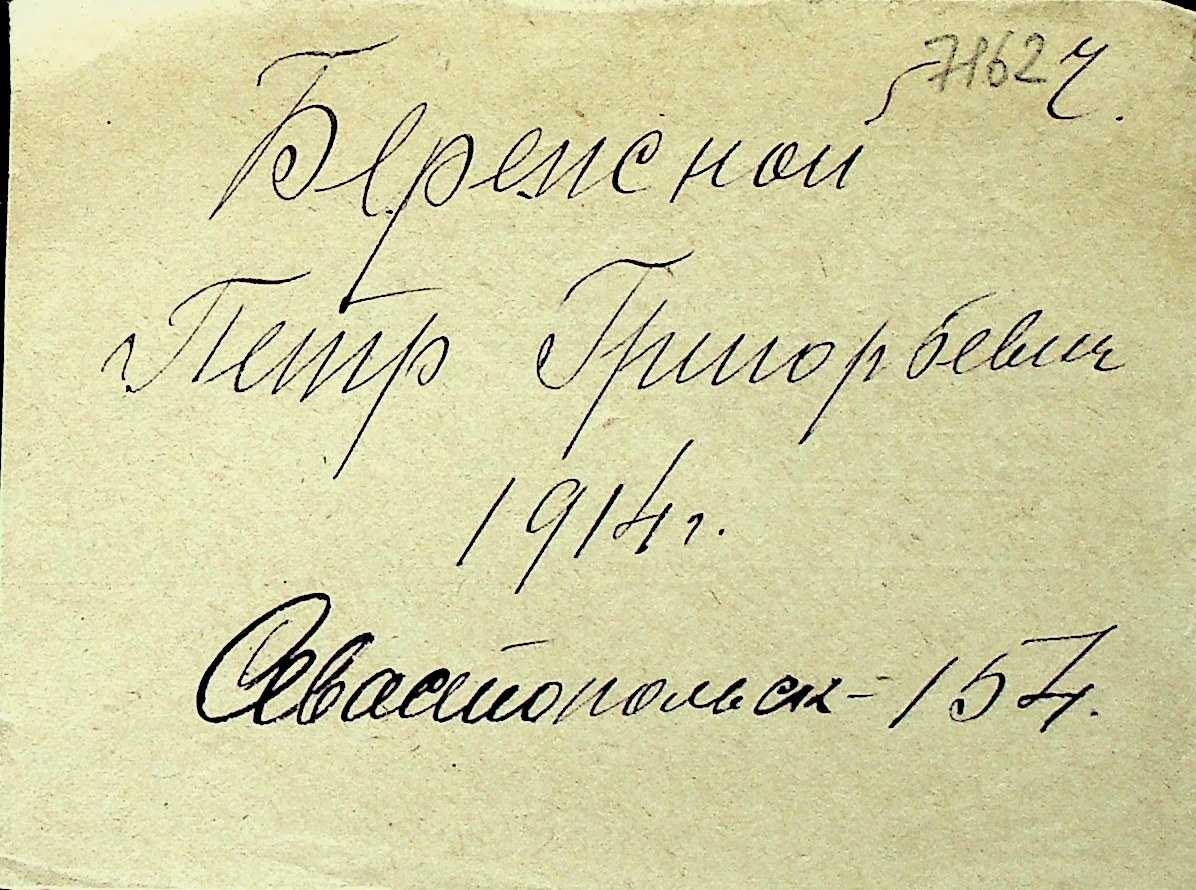 7162 Ч.
Бережной
Петр Григорьевич
1914 г.
Севастопольск - 157.